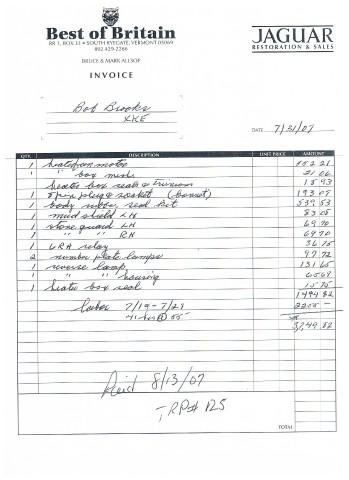 Best of Britain
RR 1, BOX 33 • SOUTH RYEGATE, VERMONT 05069
802 429-2266
BRUCE & MARK ALLSOP
INVOICE
JAGUAR
RESTORATION & SALES
Bob Brooks
XKE
DATE 7/31/07
QTY. DESCRIPTION UNIT PRICE AMOUNT
1 heater fan motor 152 21
1 " box misc 21 06
heater box seals & trunion 15 93
1 8 pin plug & socket (bonnet) 193 05
1 body rubber seal kit 539 53
1 mud shield LH 83 05
1 stone guard LH 69 70
1 " " RH 69 70
1 6RA relay 36 15
2 number plate lamps 97 72
1 reverse lamp 131 65
1 " " housing 65 69
1 heater box seal 15 75
1494 82
Labor 7/19 - 7/29 2255 -
41 hrs @ 55
3,749 82
Paid 8/13/07
TRP# 125
TOTAL